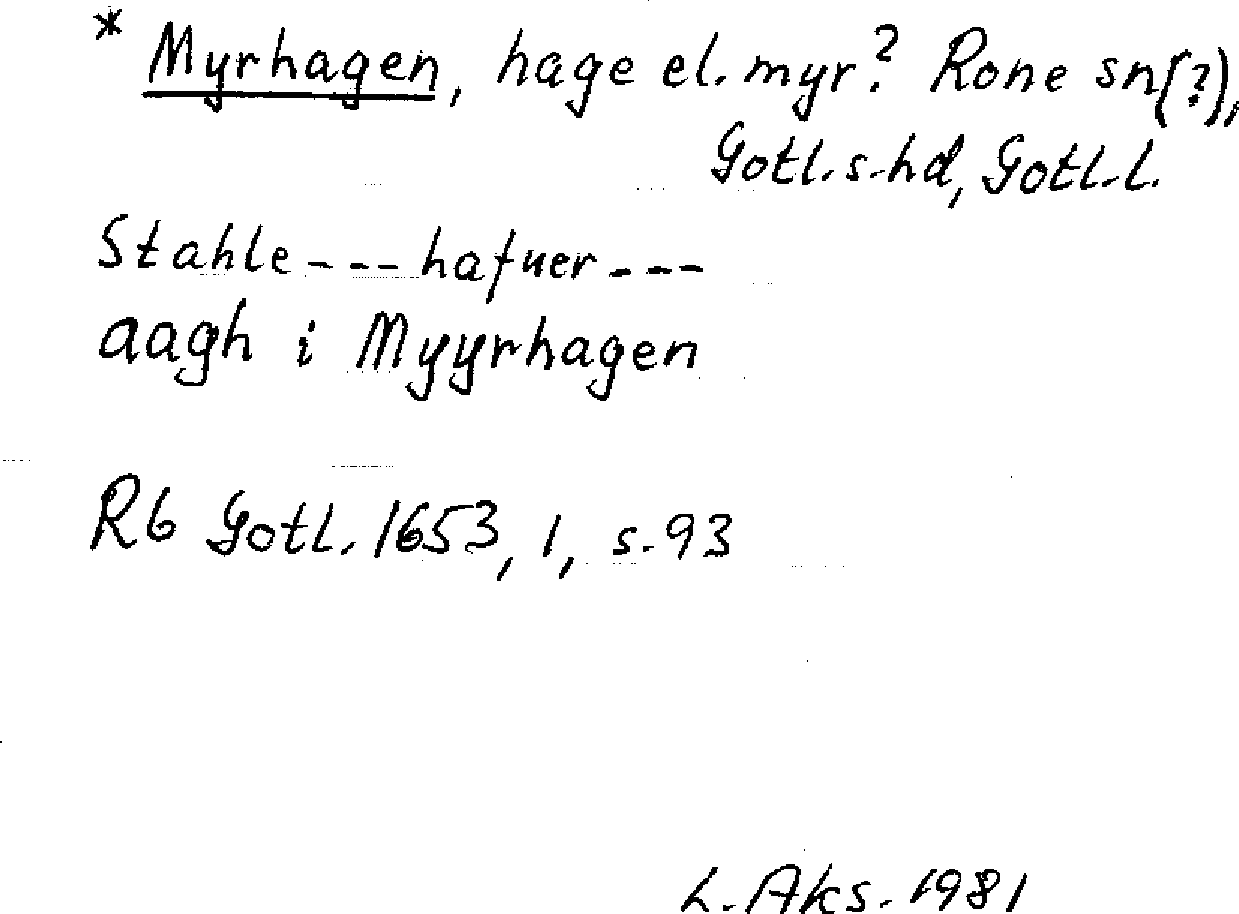 * Myrhagen, hage el. myr? Rone sn(?),
Gotl. s. hd, Gotl. l.
Stahle - - - hafuer - - -
aagh i Myyrhagen
Rb Gotl. 1653, 1, s. 93
L. Aks. 1981